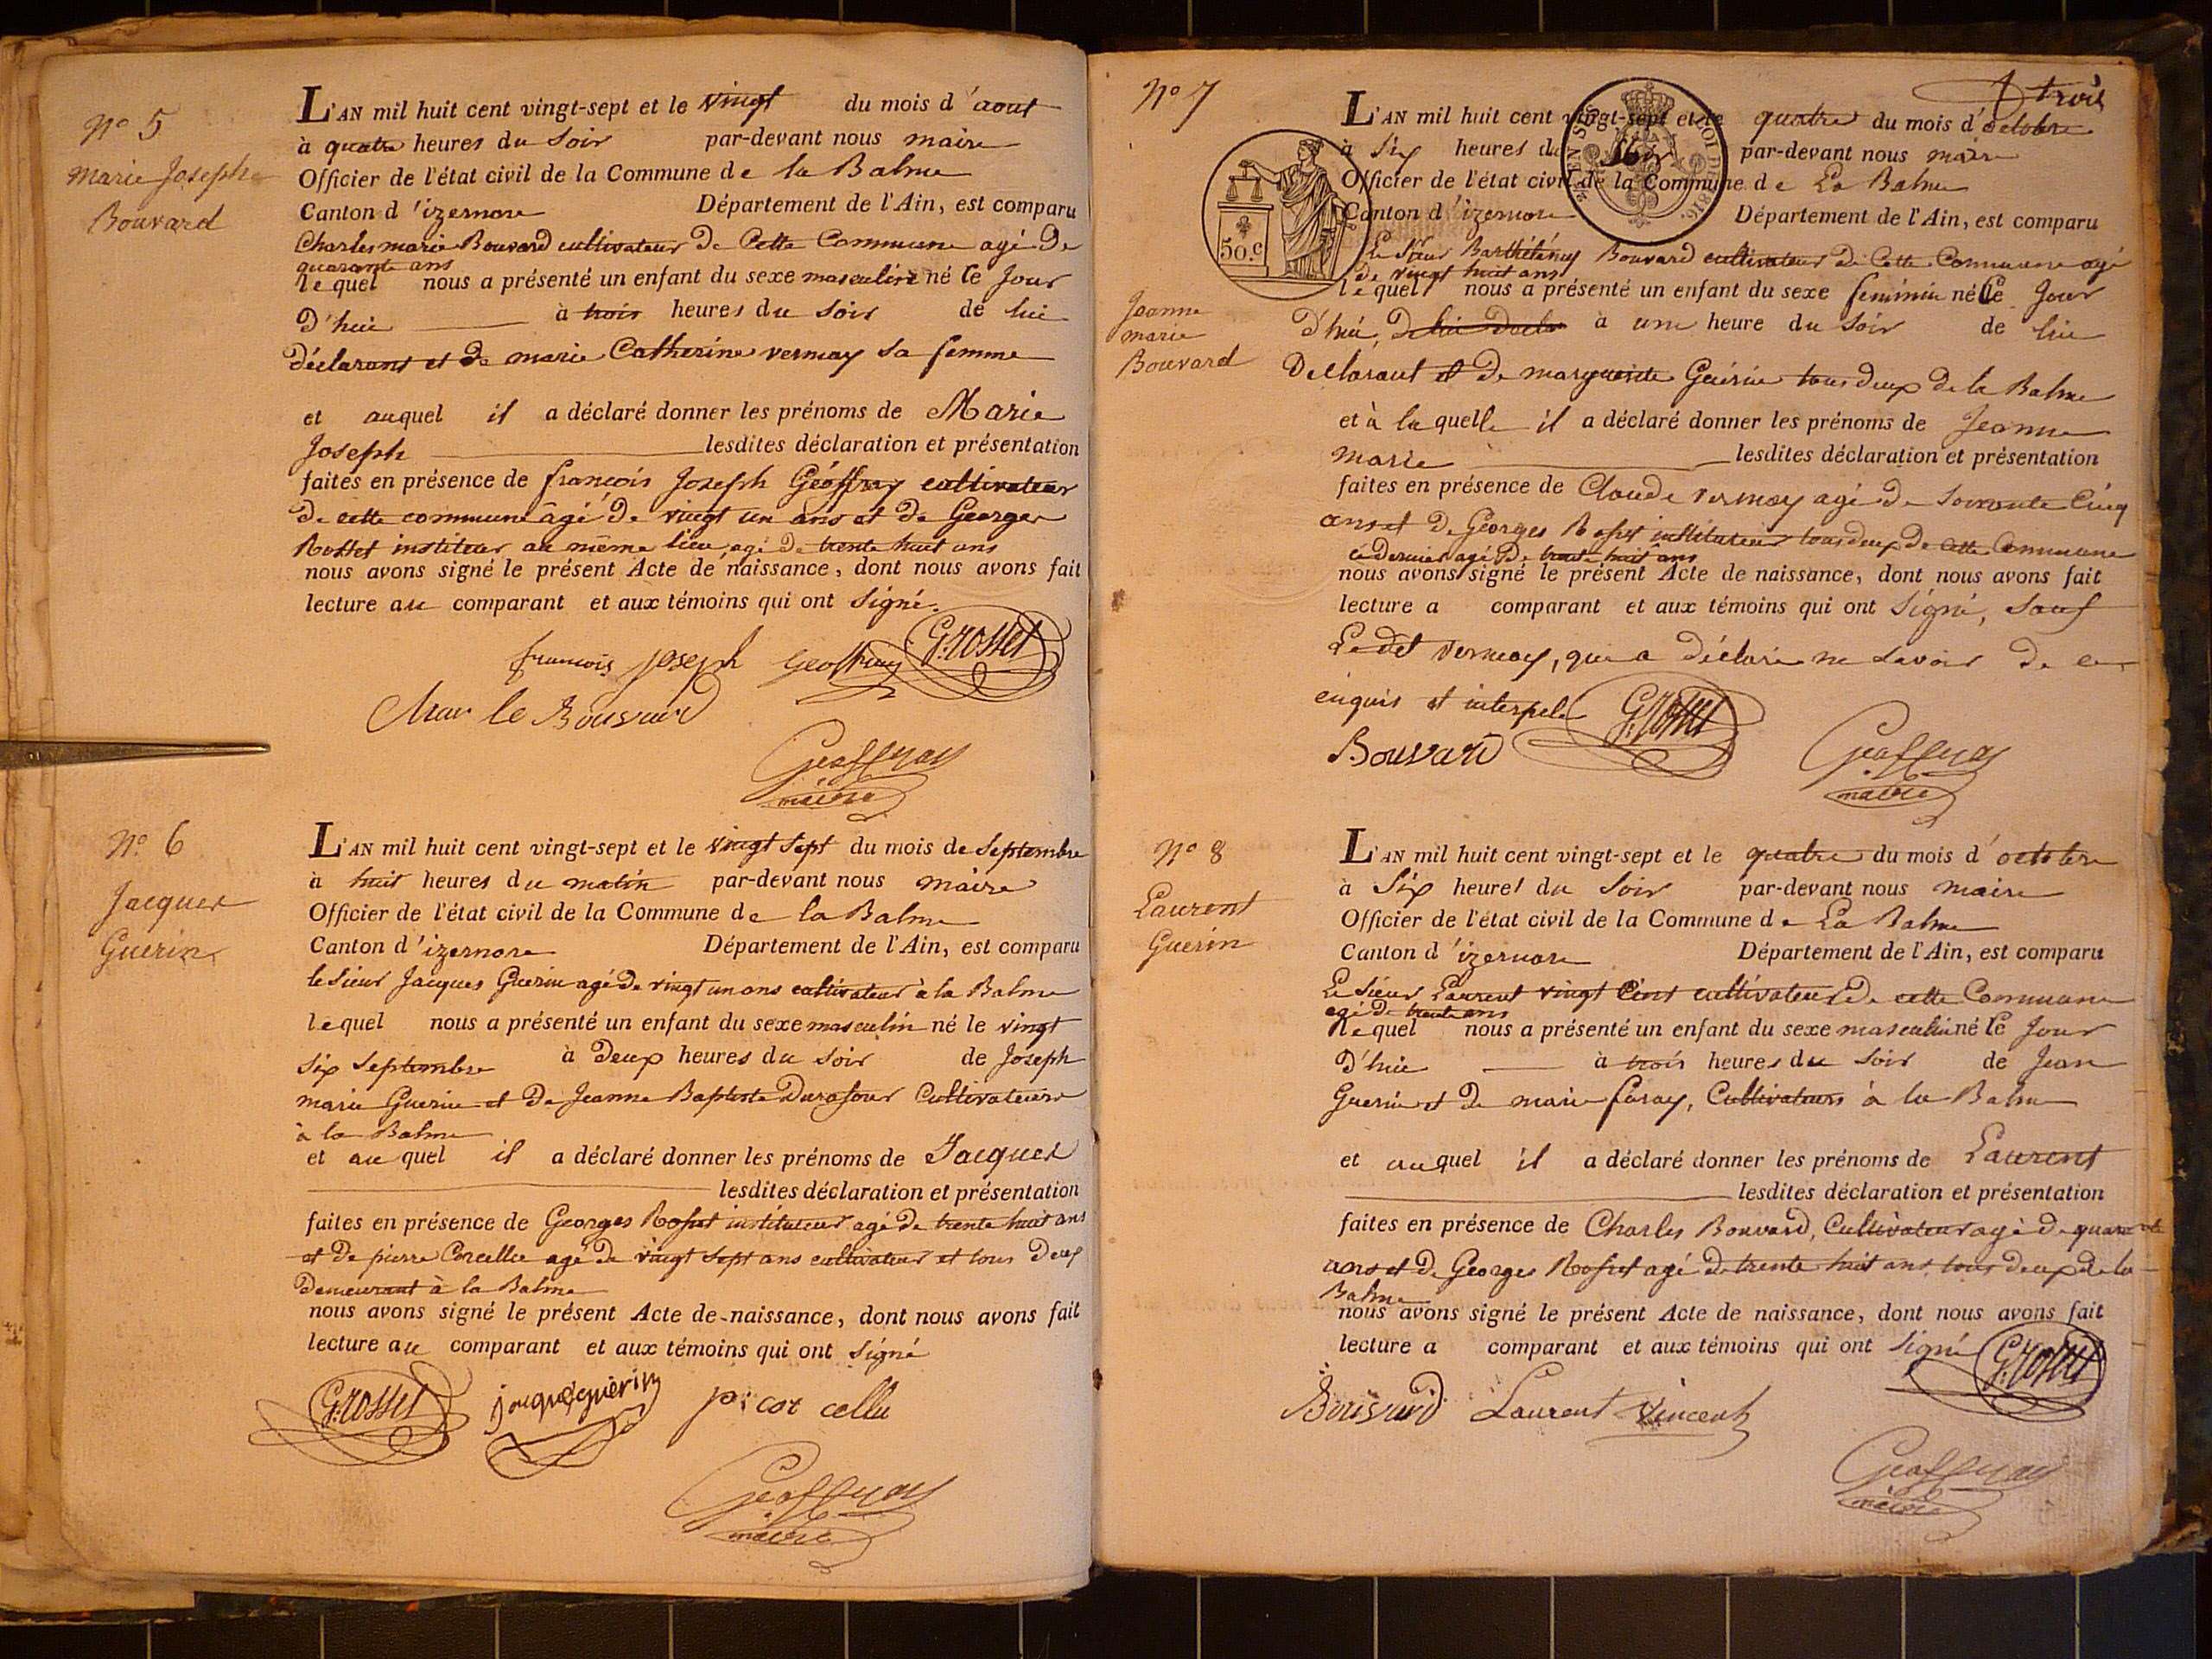 N° 5
Marie Joseph
Bouvard
L'AN mil huit cent vingt-sept et le vingt du mois d'aout
à quatre heures du Soir par-devant nous maire
Officier de l'état civil de la Commune de la Balme
Canton d'izernore Département de l'Ain, est comparu
Charles marie Bouvard cultivateur de Cette Commune agé de
quarante ans
lequel nous a présenté un enfant du sexe masculin né le Jour
d'hui à trois heures du Soir de lui
déclarant et de marie Catherine vermay sa femme
et auquel il a déclaré donner les prénoms de Marie
Joseph lesdites déclaration et présentation
faites en présence de françois Joseph Géoffray cultivateur
de cette commune âgé de vingt un ans et de George
Rosset instituteur au même lieu, agé de trente huit ans
nous avons signé le présent Acte de naissance, dont nous avons fait
lecture au comparant et aux témoins qui ont Signé.
francois joseph Geoffray G. rosset
Char le Bouvard
Geoffray
maire
N° 6
Jacques
Guerin
L'AN mil huit cent vingt-sept et le vingt Sept du mois de Septembre
à huit heures du matin par-devant nous maire
Officier de l'état civil de la Commune de la Balme
Canton d'izernore Département de l'Ain, est comparu
le Sieur Jacques Guerin agé de vingt un ans cultivateur à la Balme
lequel nous a présenté un enfant du sexe masculin né le vingt
Six Septembre à deux heures du Soir de Joseph
marie Guerin et de Jeanne Baptiste Durafour Cultivateurs
à la Balme
et au quel il a déclaré donner les prénoms de Jacques
lesdites déclaration et présentation
faites en présence de Georges Rosset instituteur agé de trente huit ans
et de pierre Corcellu agé de vingt Sept ans cultivateur et tous Deux
Demeurant à la Balme
nous avons signé le présent Acte de naissance, dont nous avons fait
lecture au comparant et aux témoins qui ont Signé
G. rosset jacque guérin pi cor cellu
Geoffray
maire
trois
N° 7
50.c
ROI DE
1816.
Jeanne
marie
Bouvard
L'AN mil huit cent vingt-sept et le quatre du mois d'octobre
à Six heures du Soir par-devant nous maire
Officier de l'état civil de la Commune de La Balme
Canton d'izernore Département de l'Ain, est comparu
Le Sieur Barthélémy Bouvard cultivateur de Cette Commune agé
de vingt huit ans
lequel nous a présenté un enfant du sexe feminin né le Jour
d'hui, à une heure du Soir de lui
Declarant et de marguerite Guérin tous deux de la Balme
et à laquelle il a déclaré donner les prénoms de Jeanne
marie lesdites déclaration et présentation
faites en présence de Claude vermay agé de Soixante Cinq
ans et de Georges Rosset instituteur tous deux de cette Commune
ce dernier agé de trente huit ans
nous avons signé le présent Acte de naissance, dont nous avons fait
lecture a comparant et aux témoins qui ont Signé, Sauf
Le dit vermay, qui a déclaré ne Savoir de ce
enquis et interpelé G. rosset
Bouvard
Geoffray
maire
N° 8
Laurent
Guerin
L'AN mil huit cent vingt-sept et le quatre du mois d'octobre
à Six heures du Soir par-devant nous maire
Officier de l'état civil de la Commune de La Balme
Canton d'izernore Département de l'Ain, est comparu
Le Sieur Laurent cultivateur de cette Commune
agé de trente ans
lequel nous a présenté un enfant du sexe masculin né le Jour
d'hui à trois heures du Soir de Jean
Guerin et de marie furay, Cultivateurs à la Balme
et auquel il a déclaré donner les prénoms de Laurent
lesdites déclaration et présentation
faites en présence de Charles Bouvard, Cultivateur agé de quarante
ans et de Georges Rosset agé de trente huit ans tous deux de la
Balme
nous avons signé le présent Acte de naissance, dont nous avons fait
lecture a comparant et aux témoins qui ont Signé G. rosset
Bouvard Laurent Vincent
Geoffray
maire